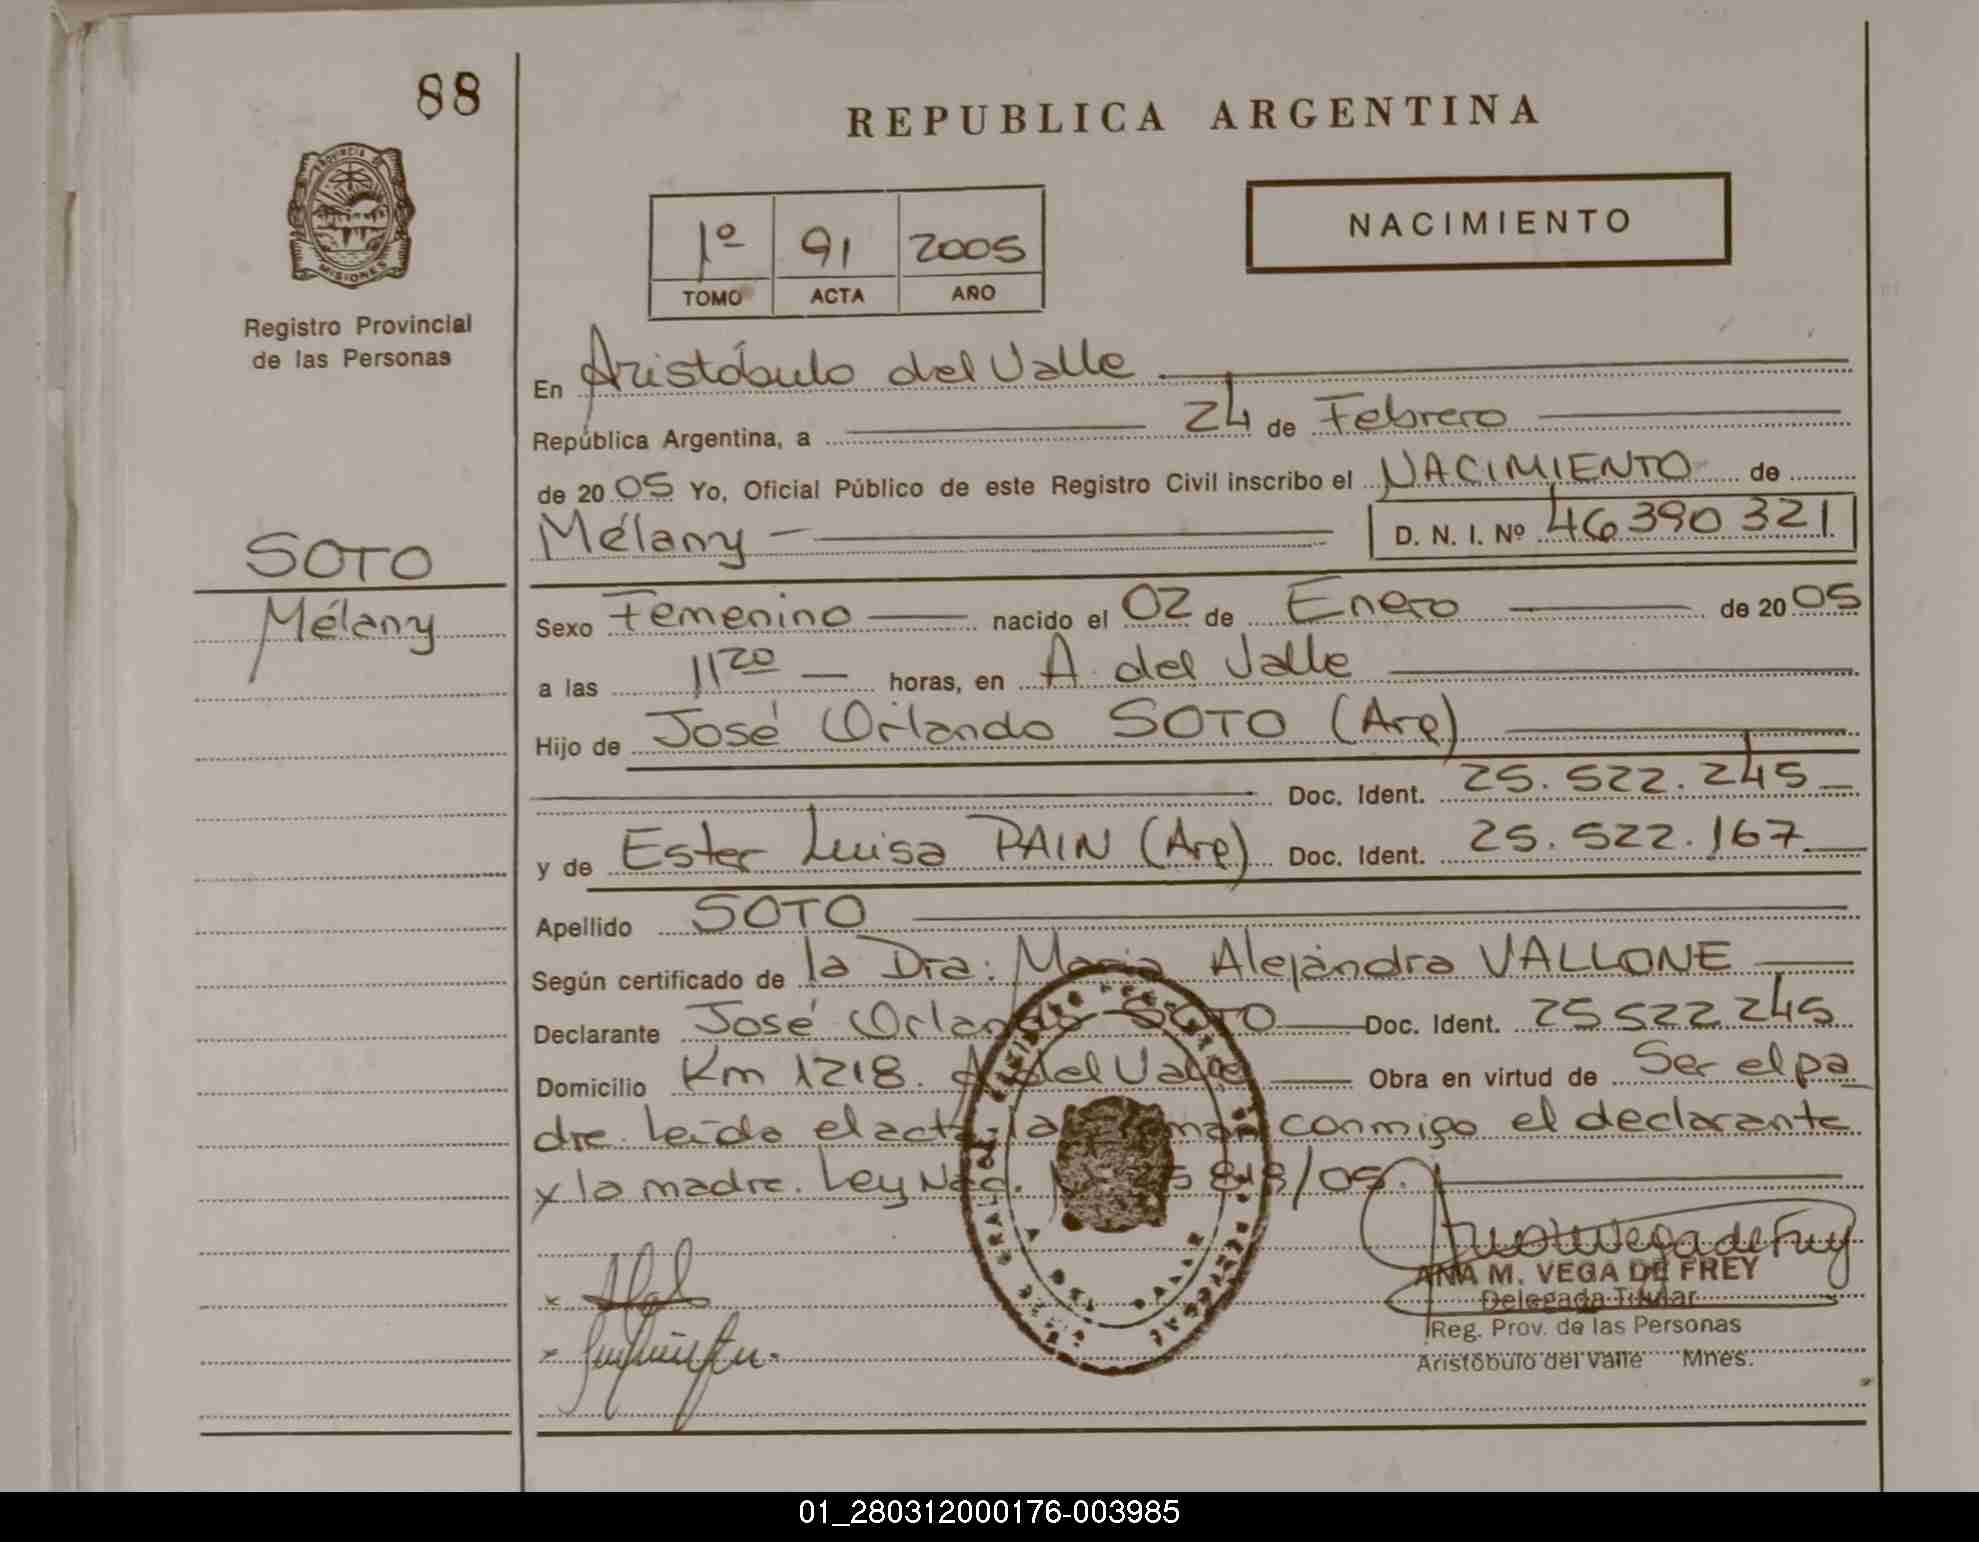 88
REPUBLICA ARGENTINA
PROVINCIA DE
MISIONES
Registro Provincial
de las Personas
1º 91 2005
TOMO ACTA AÑO
NACIMIENTO
En Aristóbulo del Valle
República Argentina, a 24 de Febrero
de 2005 Yo, Oficial Público de este Registro Civil inscribo el NACIMIENTO de
Mélany D. N. I. Nº 46 390 321
SOTO
Mélany
Sexo Femenino nacido el 02 de Enero de 2005
a las 11 20 horas, en A. del Valle
Hijo de José Orlando SOTO (Arg)
Doc. Ident. 25.522.245
y de Ester Luisa PAIN (Arg) Doc. Ident. 25.522.167
Apellido SOTO
Según certificado de la Dra. María Alejandra VALLONE
Declarante José Orlando SOTO Doc. Ident. 25 522 245
Domicilio Km 1218. A. del Valle Obra en virtud de Ser el pa
dre. Leída el acta, la conmigo el declarante
y la madre. Ley Nac. 818/05.
ANA M. VEGA DE FREY
Delegada Titular
Reg. Prov. de las Personas
Aristóbulo del Valle Mnes.
01_280312000176-003985